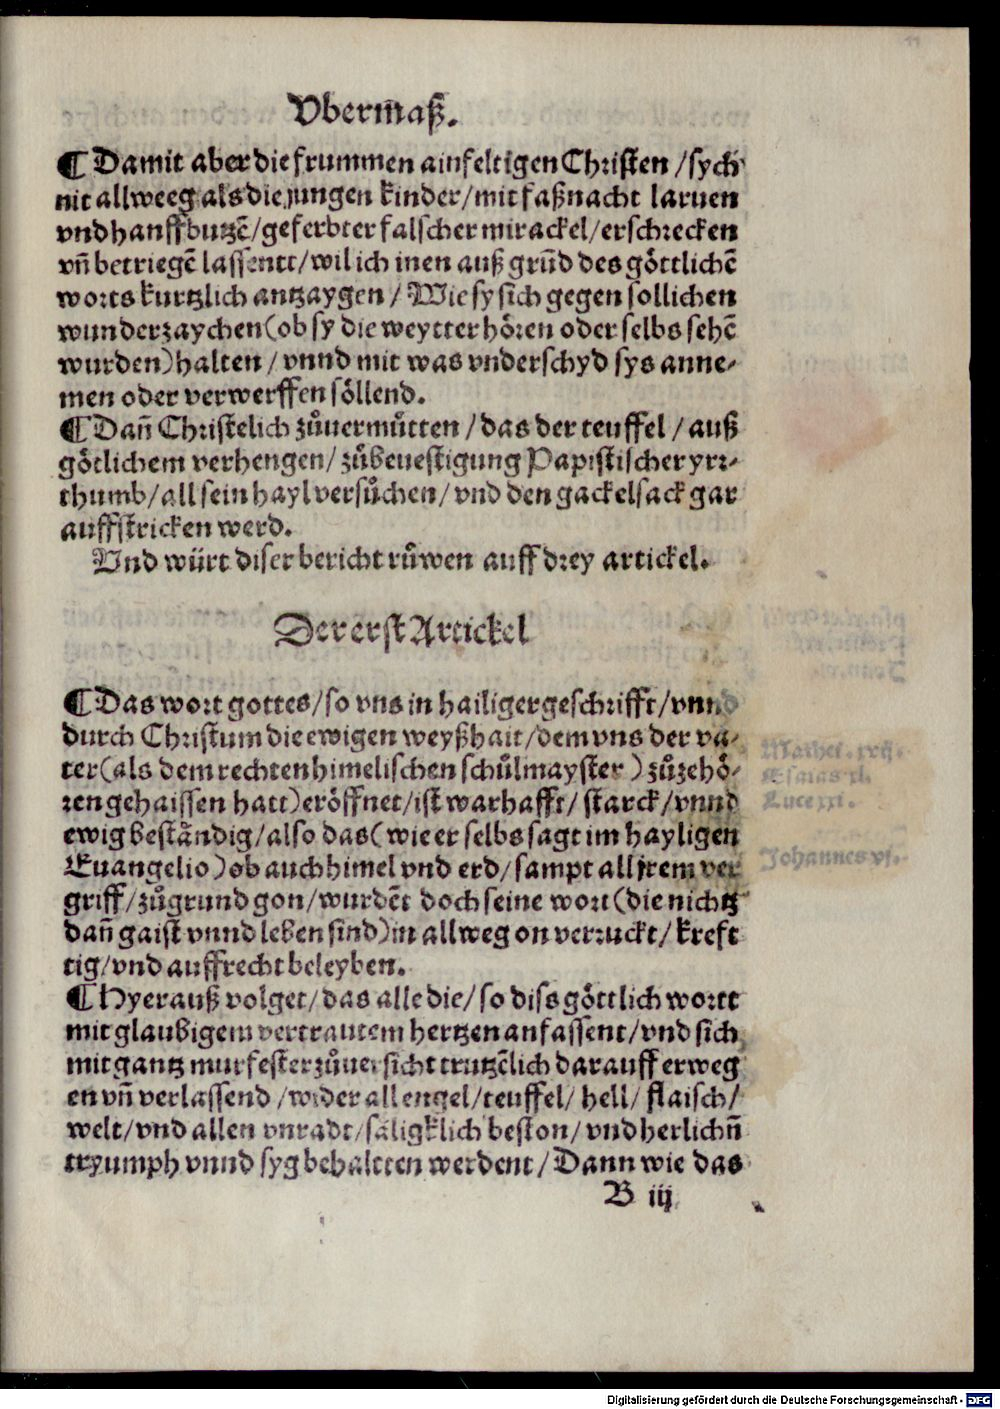 11
Vberm̄aß.
¶ Damit aber die frummen ainfeltigen Christen / sych
nit allweeg als die jungen kinder / mit faßnacht laruen
vnd hanffbutzē / geferbter falscher mirackel / erschrecken
vn̄ betriegē lassentt / wil ich inen auß grūd des göttlichē
worts kurtzlich antzaygen / Wie sy sich gegen sollichen
wunderzaychen (ob sy die weytter hören oder selbs sehē
wurden) halten / vnnd mit was vnderschyd sys anne⸗
men oder verwerffen söllend.
¶ Dan̄ Christelich zůuermůtten / das der teuffel / auß
götlichem verhengen / zůbeuestigung Papistischer yrr⸗
thumb / all sein hayl versůchen / vnd den gackelsack gar
auffstricken werd.
Vnd würt diser bericht růwen auff drey artickel.
Der erst Artickel
¶ Das wort gottes / so vns in hailiger geschrifft / vnnd
durch Christum die ewigen weyßhait / dem vns der va⸗
ter (als dem rechten himelischen schůlmayster) zůzehö⸗
ren gehaissen hatt) eröffnet / ist warhafft / starck / vnnd
ewig beständig / also das (wie er selbs sagt im hayligen
Euangelio) ob auch himel vnd erd / sampt all jrem ver
griff / zůgrund gon / wurdēt doch seine wort (die nichtz
dan̄ gaist vnnd leben sind) in allweg on verruckt / kreff
tig / vnd auffrecht beleyben.
¶ Hyerauß volget / das alle die / so diss göttlich wortt
mit glaubigem vertrautem hertzen anfassent / vnd sich
mit gantz murfester zůuersicht trutzēlich darauff erweg
en vn̄ verlassend / wider all engel / teuffel / hell / flaisch /
welt / vnd allen vnradt / säligklich beston / vnd herlichn̄
tryumph vnnd syg behaltten werdent / Dann wie das
B iij
Mathei. xvij.
Esaias xl.
Luce xxi.
Johannes vj.
Digitalisierung gefördert durch die Deutsche Forschungsgemeinschaft - DFG